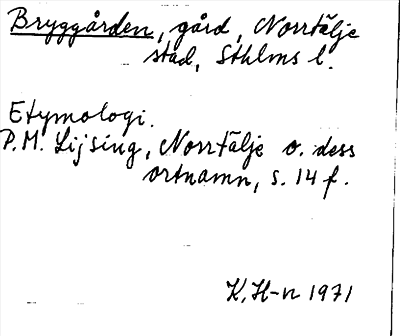 Bryggården, gård, Norrtälje
stad, Sthlms l.
Etymologi.
P.M. Lijsing, Norrtälje o. dess
ortnamn, s. 14 f.
K. H-n 1971